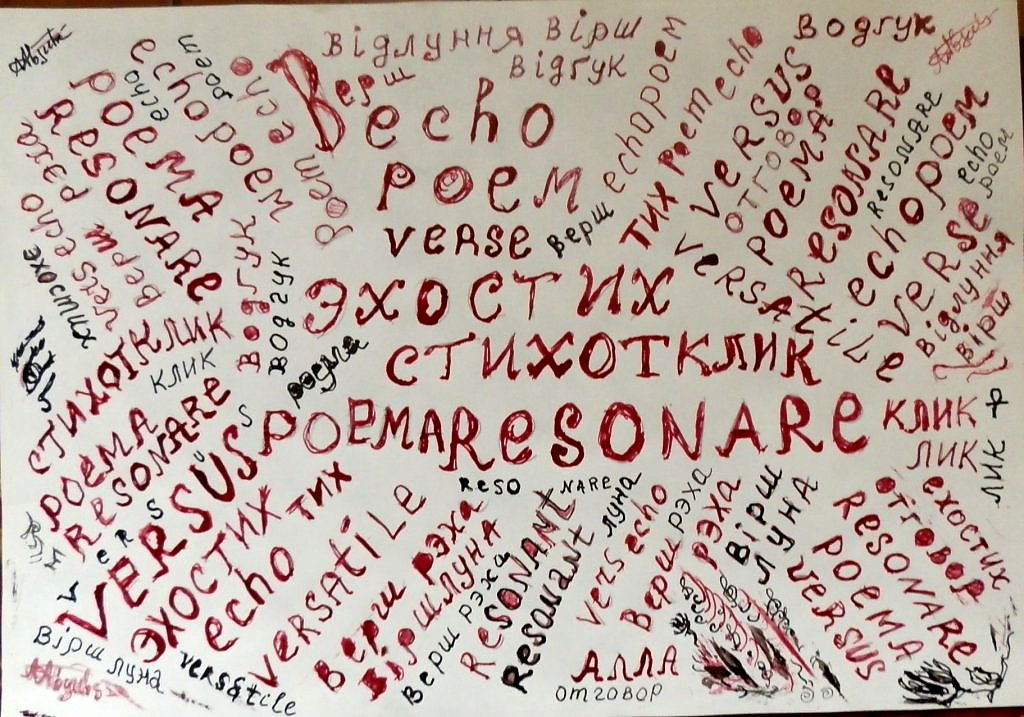 Відлуння вірш
Водгук
відгук
Верш
echo
poem
echo
poem
echo
poem
echo
poem
echo
poema
resonare
рэха
echo
verш
vers
эхостих
echo
poem
verse
Верш
echopoem
тих
poem
echo
versus
отговор
poema
versatile
resonare
resonare
echo poem
echo
poem
verse
відлуння
вірш
водгук
водгук
poema
эхостих
стихотклик
poema
resonare
клик
лик
лик
стихотклик
клик
poema
resonare
versus
vers
эхостих
тих
echo
versatile
вірш луна
versatile
reso
nare
Верш рэха
Вірш луна
Верш рэха
resonant
resonant
луна
vers echo
Верш рэха
рэха
вірш
луна
versus
poema
resonare
отговор
ехостих
АЛЛА
отговор